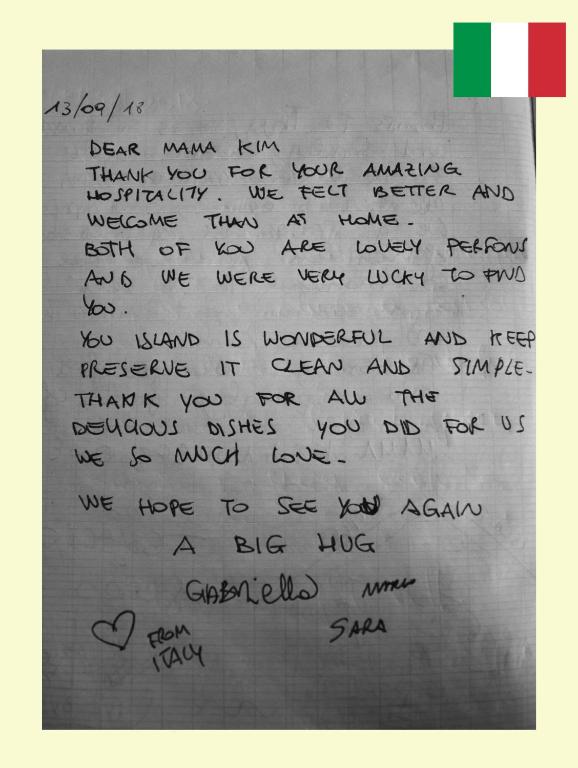 13/09/18
DEAR MAMA KIM
THANK YOU FOR YOUR AMAZING
HOSPITALITY. WE FELT BETTER AND
WELCOME THAN AT HOME.
BOTH OF YOU ARE LOVELY PERSONS
AND WE WERE VERY LUCKY TO FIND
YOU.
YOU ISLAND IS WONDERFUL AND KEEP
PRESERVE IT CLEAN AND SIMPLE.
THANK YOU FOR ALL THE
DELICIOUS DISHES YOU DID FOR US
WE SO MUCH LOVE.
WE HOPE TO SEE YOU AGAIN
A BIG HUG
GABRiella
SARA
FROM
ITALY